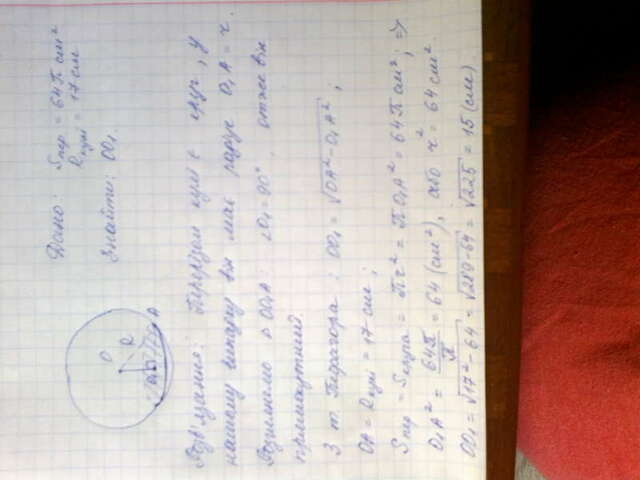 Дано: Sпер = 64π см²
Rкулі = 17 см
Знайти: OO₁.
O
R
O₁
A
Розв'язання: Перерізом кулі є круг, у
нашому випадку він має радіус O₁A = r.
Розглянемо △ OO₁A: ∠O₁ = 90°, отже він
прямокутний.
З т. Піфагора: OO₁ = √OA² - O₁A² ;
OA = Rкулі = 17 см;
Sпер = Sкруга = πr² = πO₁A² = 64π см²; =>
O₁A² = 64π/π = 64 (см²), або r² = 64 см².
OO₁ = √17² - 64 = √289 - 64 = √225 = 15 (см)